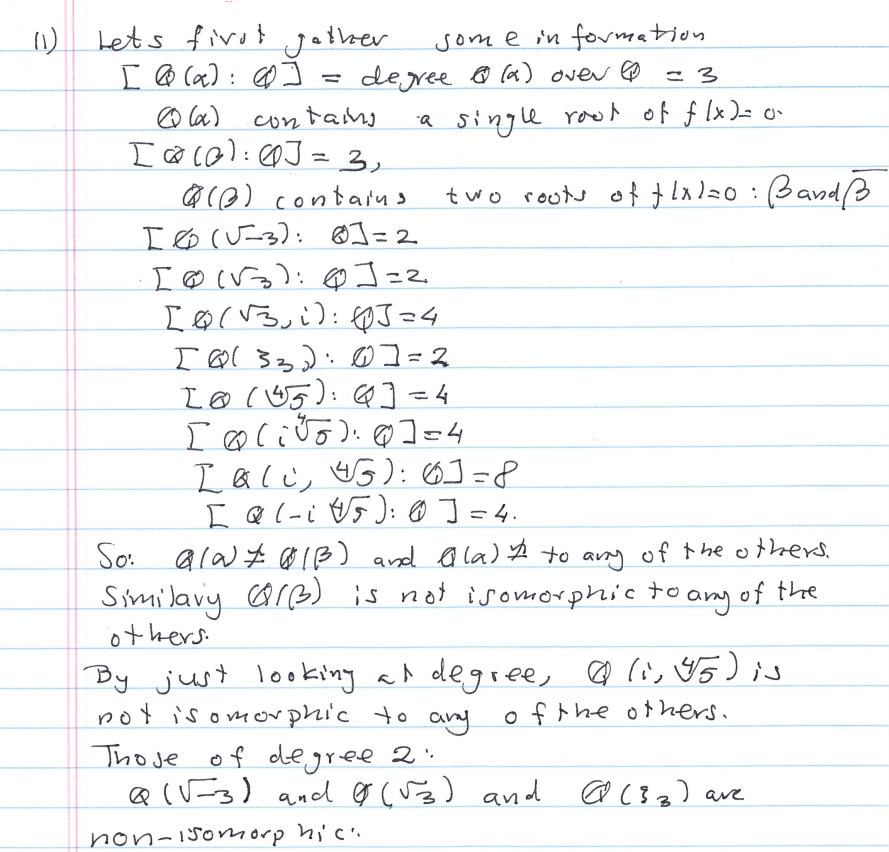 (1) Lets first gather some information
[Q(α): Q] = degree Q(α) over Q = 3
Q(α) contains a single root of f(x)=0.
[Q(β): Q] = 3,
Q(β) contains two roots of f(x)=0 : β and β̅
[Q(√-3): Q]=2
[Q(√3): Q]=2
[Q(√3, i): Q]=4
[Q(ζ₃): Q]=2
[Q(∜5): Q]=4
[Q(i∜5): Q]=4
[Q(i, ∜5): Q]=8
[Q(-i∜5): Q]=4.
So: Q(α) ≇ Q(β) and Q(α) ≇ to any of the others.
Similary Q(β) is not isomorphic to any of the
others.
By just looking at degree, Q(i, ∜5) is
not isomorphic to any of the others.
Those of degree 2:
Q(√-3) and Q(√3) and Q(ζ₃) are
non-isomorphic: